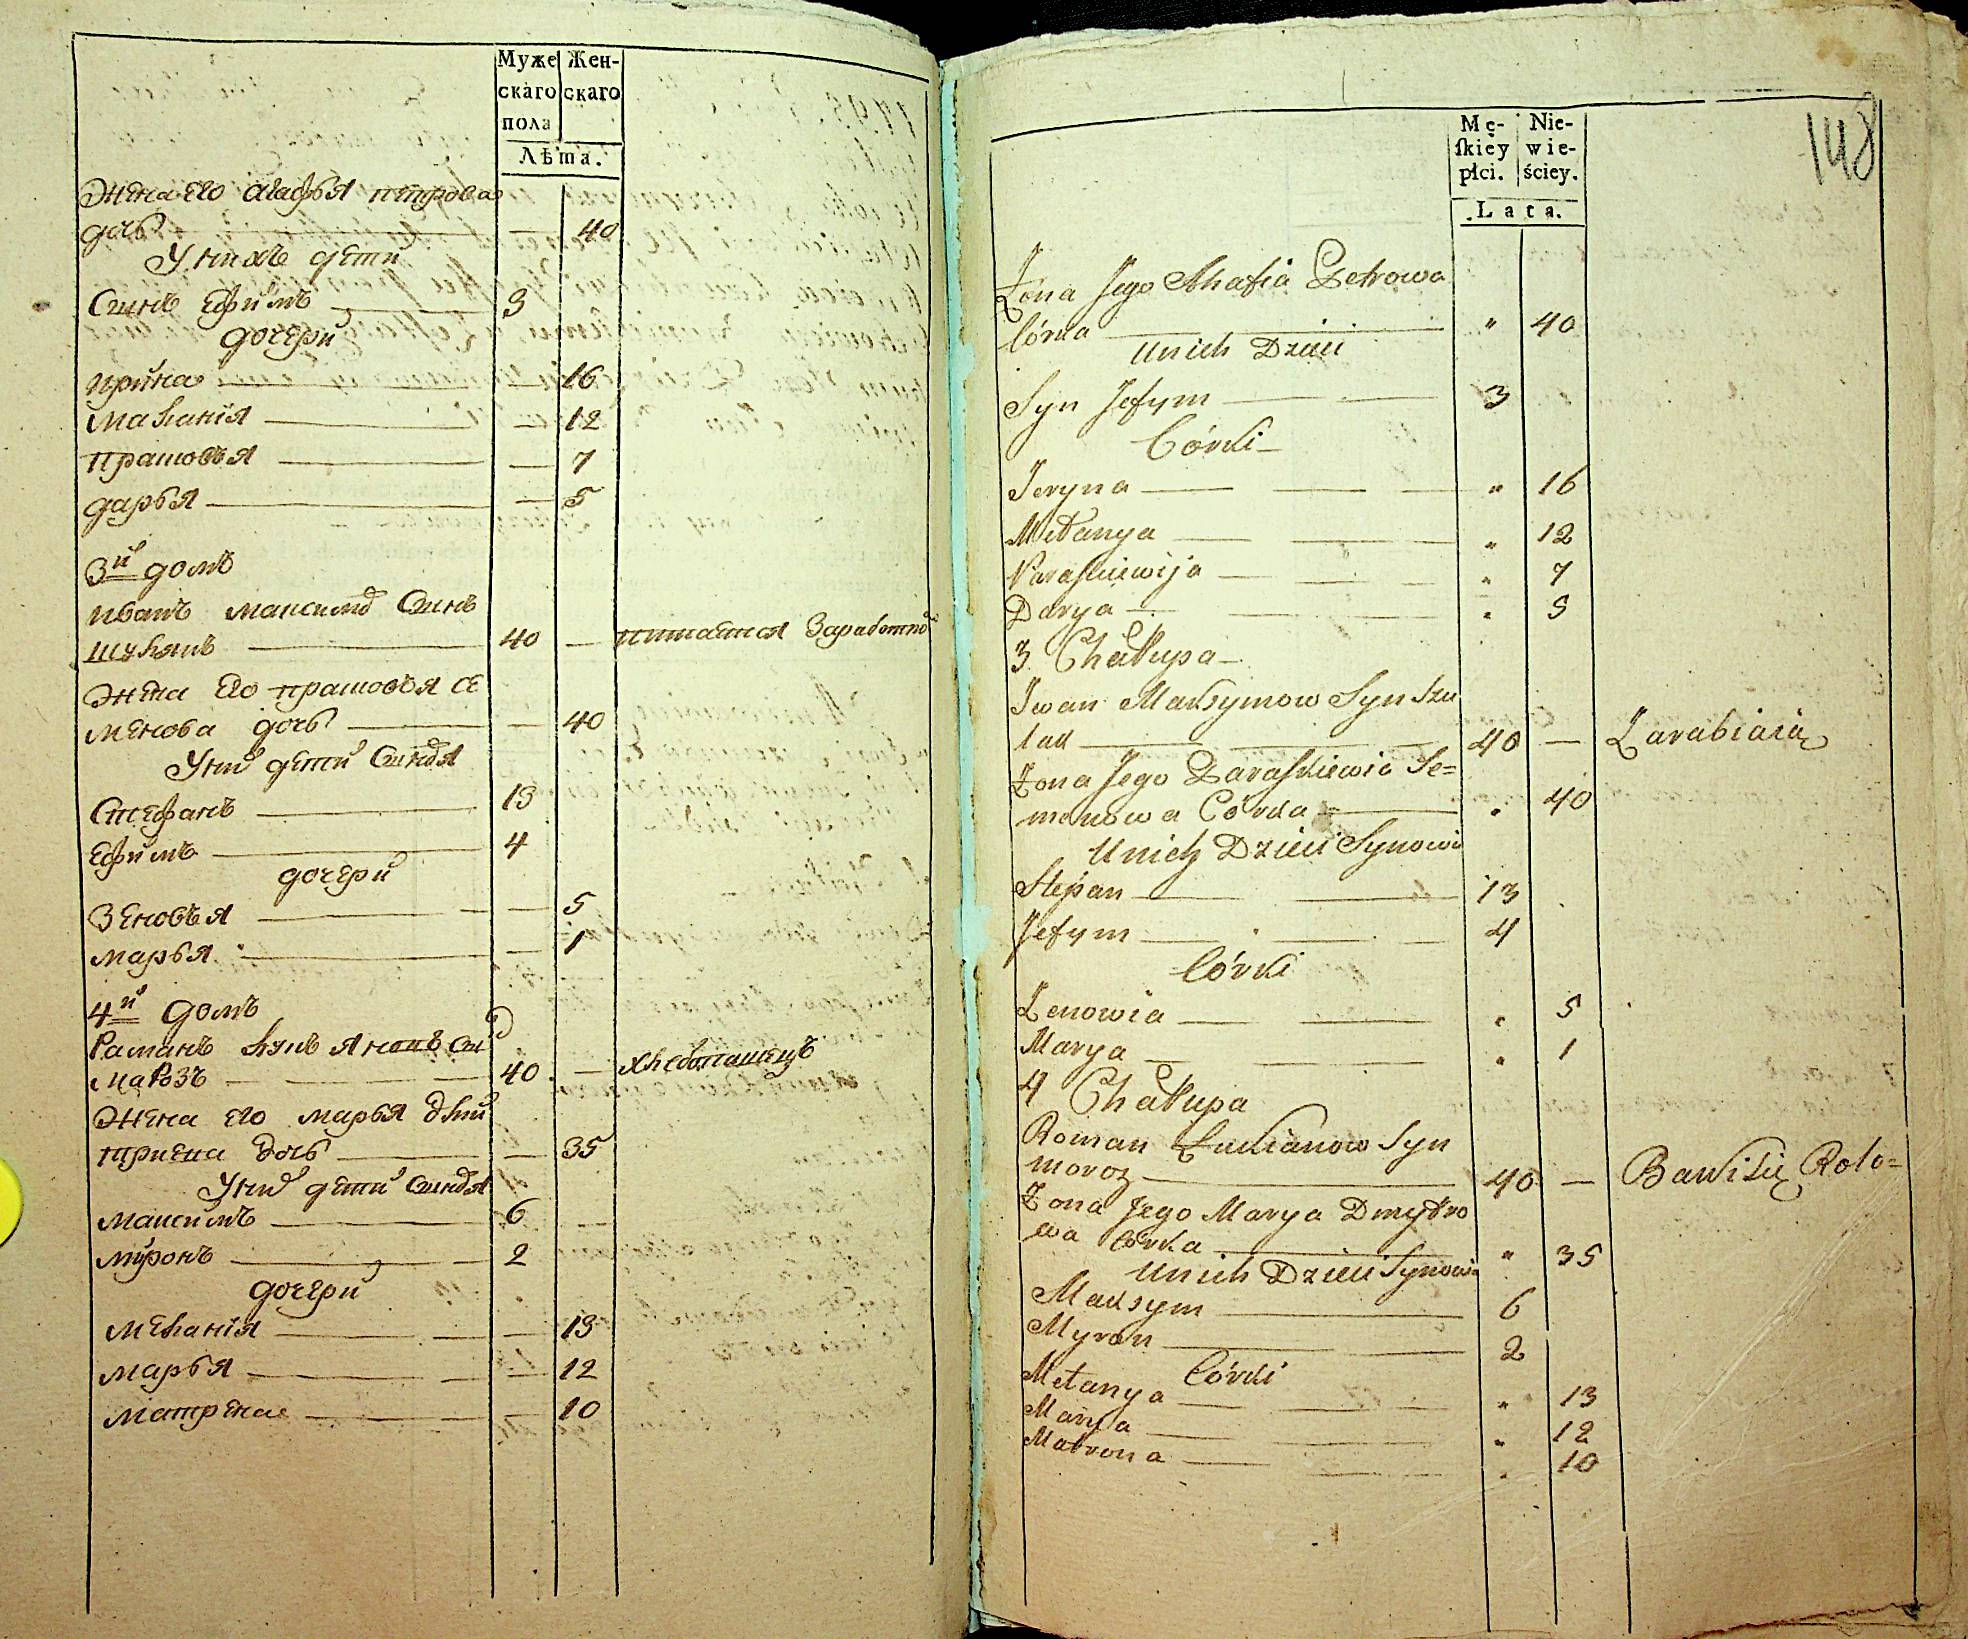 Муже
скаго
пола
Жен-
скаго
Лѣта.
Жена его Агафья петрова
дочь — 40
У нихъ дети
Сынъ Ефимъ — 3
дочери
Ирина — 16
Маланiя — 12
прасковья — 7
дарья — 5
3й домъ
Иванъ максимо Сынъ
шулякъ — 40 — питаится Заработко
Жена Его прасковья Се
менова дочь — 40
У ни дети Сыновя
Стефанъ — 13
Ефимъ — 4
дочери
Зеновья — 5
марья — 1
4й домъ
Раманъ сы
марозъ — 40 — хлебопашецъ
Жена его марья дми
триева дочь — 35
У ни дети сыновя
максимъ — 6
миронъ — 2
дочери
меланiя — 13
марья — 12
матрена — 10
148
Mę-
ſkiey
płci.
Nie-
wie-
ściey.
Lata.
Żona Jego Ahafia Petrowa
Córka — " 40
U nich Dzieci
Syn Jefym — 3
Córki
Jeryna — " 16
Mełanya — " 12
Paraſkiewija — " 7
Darya — " 5
3 Chałupa
Iwan Maksymow Syn Szu
lak — 40 — Zarabiaią
Żona Jego Paraſkiewia Se=
menowa Córka — " 40
U nich Dzieci Synowie
Stepan — 13
Jefym — 4
Córki
Zenowia — " 5
Marya — " 1
4 Chałupa
Roman Łukianow Syn
moroz — 40 — Bawi się Rolo=
Żona Jego Marya Dmytro
wa Córka — " 35
U nich Dzieci Synowie
Maksym — 6
Myron — 2
Córki
Mełanya — " 13
Marya — " 12
Matrona — " 10